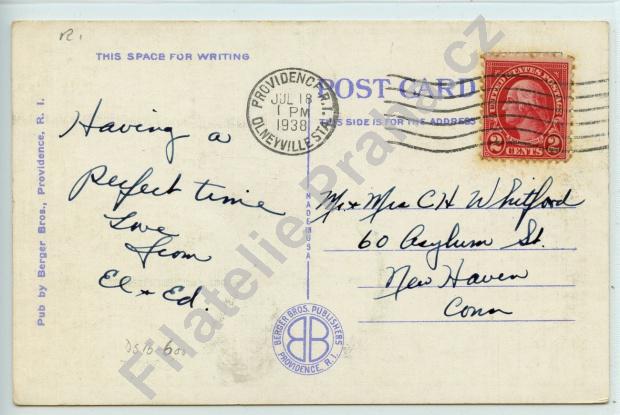 R.I.
THIS SPACE FOR WRITING
POST CARD
THIS SIDE IS FOR THE ADDRESS
PROVIDENCE, R.I.
JUL 18
1 PM
1938
OLNEYVILLE STA.
UNITED STATES POSTAGE
2 CENTS 2
Having a
Perfect time
Love
from
El & Ed.
Mr & Mrs C H Whitford
60 Asylum St.
New Haven
Conn
Pub by Berger Bros., Providence, R. I.
MADE IN USA
BERGER BROS. PUBLISHERS
BB
PROVIDENCE, R. I.
Filatelie-Praha.cz